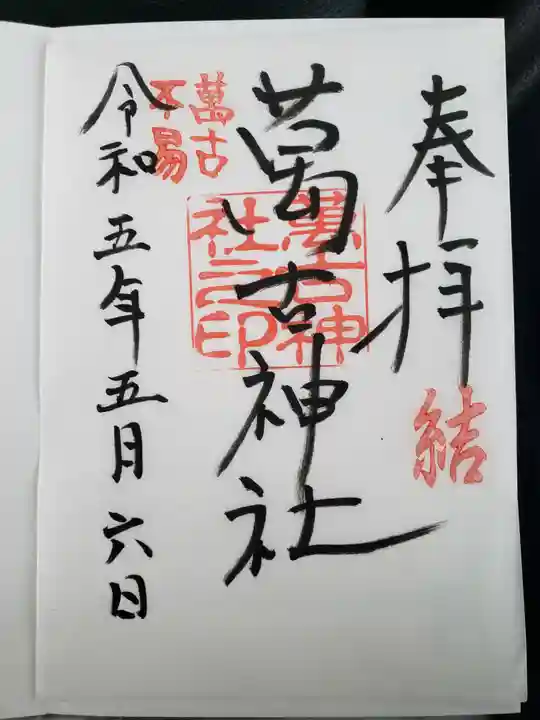 奉拝
結
萬古神社
萬古神社之印
萬古不易
令和五年五月六日